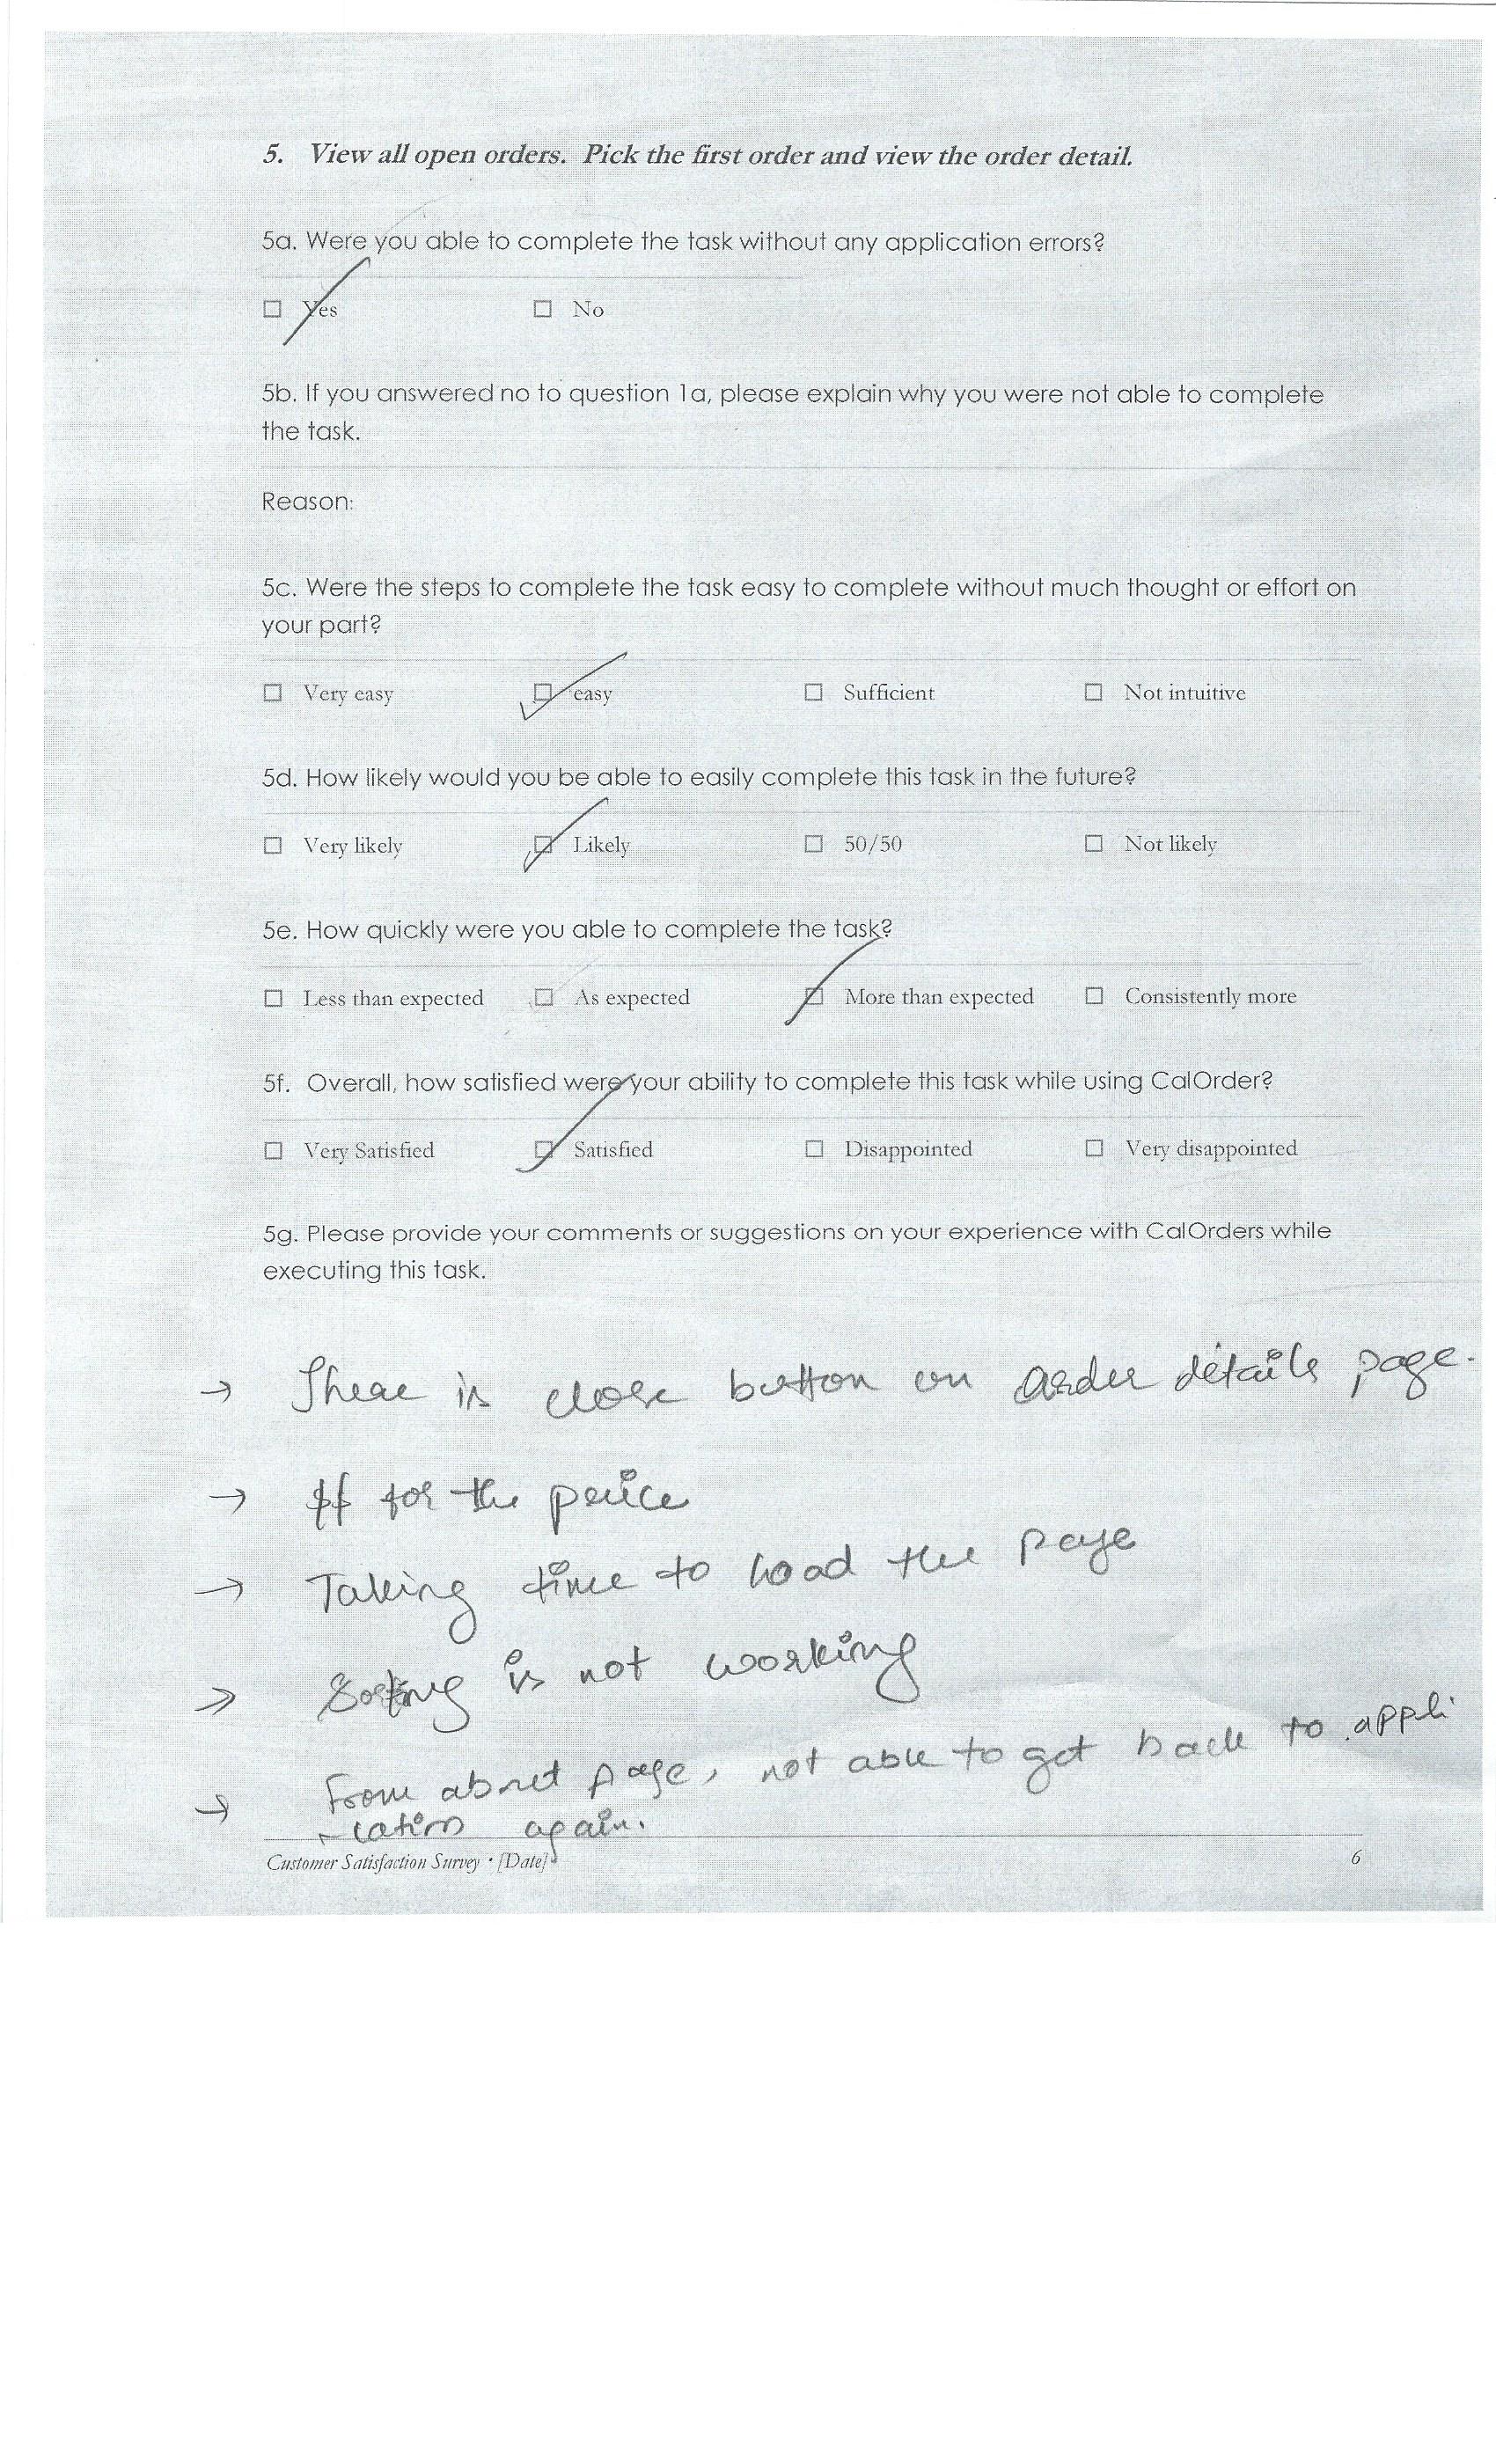 5. View all open orders. Pick the first order and view the order detail.
5a. Were you able to complete the task without any application errors?
☐ Yes ☐ No
5b. If you answered no to question 1a, please explain why you were not able to complete
the task.
Reason:
5c. Were the steps to complete the task easy to complete without much thought or effort on
your part?
☐ Very easy ☐ easy ☐ Sufficient ☐ Not intuitive
5d. How likely would you be able to easily complete this task in the future?
☐ Very likely ☐ Likely ☐ 50/50 ☐ Not likely
5e. How quickly were you able to complete the task?
☐ Less than expected ☐ As expected ☐ More than expected ☐ Consistently more
5f. Overall, how satisfied were your ability to complete this task while using CalOrder?
☐ Very Satisfied ☐ Satisfied ☐ Disappointed ☐ Very disappointed
5g. Please provide your comments or suggestions on your experience with CalOrders while
executing this task.
→ There is close button on order details page.
→ $$ for the price
→ Taking time to load the page
→ Sorting is not working
→ From about page, not able to get back to appli
-cation again.
Customer Satisfaction Survey • [Date] 6